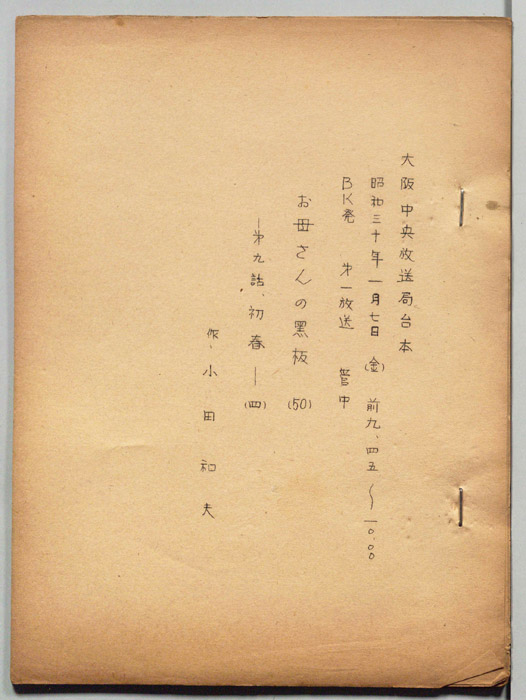 大阪中央放送局台本
昭和三十年一月七日(金)前九、四五〜一〇、〇〇
BK発 第一放送 管中
お母さんの黒板(50)
―第九話、初春―(四)
作、小田和夫